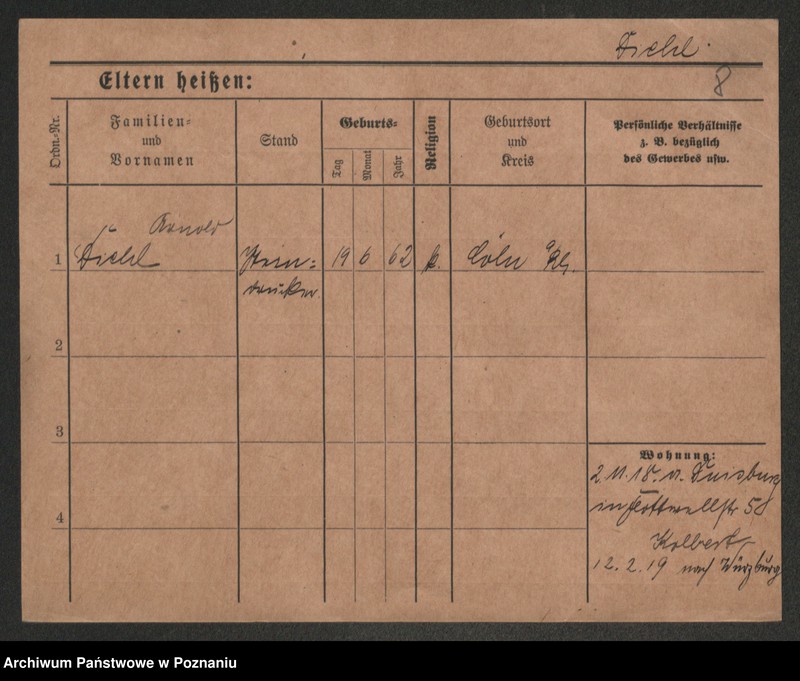 Diehl.
8
Eltern heißen:
Ordn.-Nr.
Familien-
und
Vornamen
Stand
Geburts-
Tag
Monat
Jahr
Religion
Geburtsort
und
Kreis
Persönliche Verhältnisse
z. B. bezüglich
des Gewerbes usw.
Arnold
1 Diehl Stein= 19 6 62 k. Cöln a/Rh.
drucker.
2
3
Wohnung:
2.11.18. v. Duisburg
in Flottwellstr 58
4
Kolbert
12.2.19 nach Würzburg
Archiwum Państwowe w Poznaniu